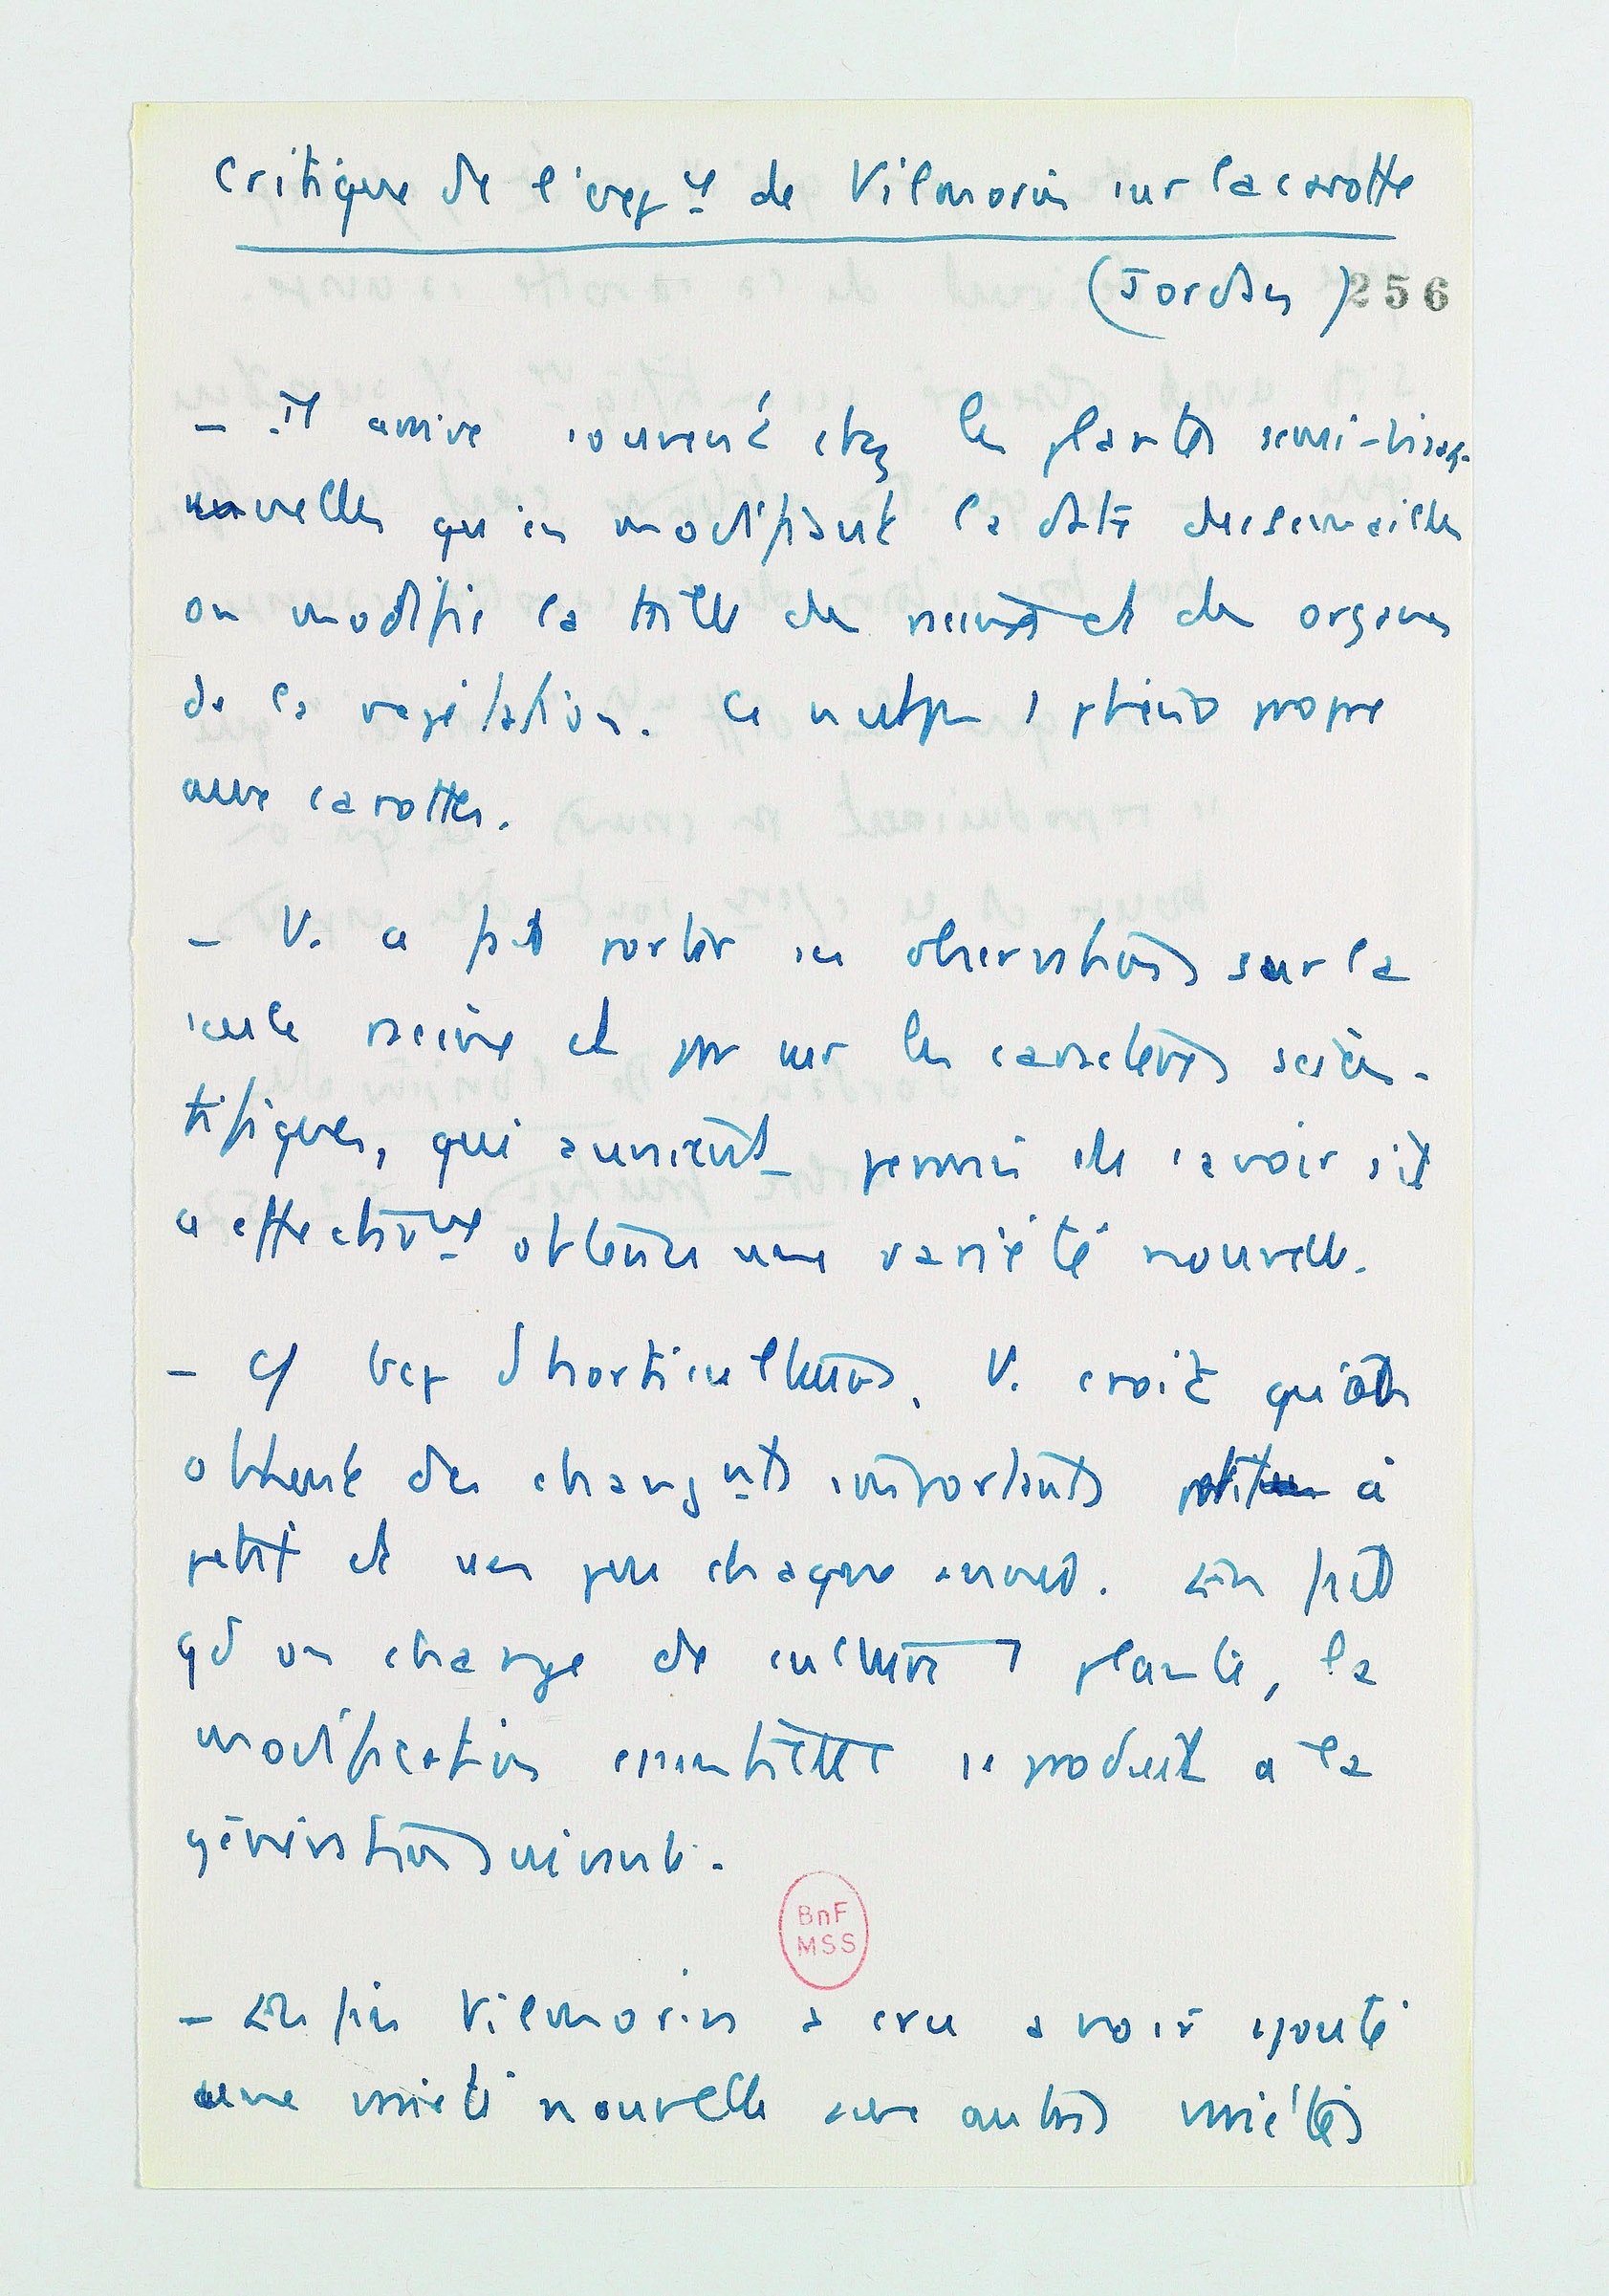 Critique de l'exp ce de Vilmorin sur la carotte
(Jordan) 256
– Il arrive souvent chez les plantes semi-bisan-
nuelles qu'en modifiant la date des semailles
on modifie la taille des racines et des organes
de la végétation. Ce n'est pas 1 phéno propre
aux carottes.
– V. a fait porter ses observations sur la
seule racine et pas sur les caractères scien-
tifiques, qui auraient permis de savoir s'il
a effectivmt obtenu une variété nouvelle.
– Cf bcp d'horticulteurs, V. croit qu'on
obtient des changnts importants petit à
petit et un peu chaque année. En fait
qd on change de culture 1 plante, la
modification essentielle se produit à la
génération suivante.
BnF
MSS
– Enfin Vilmorin a cru avoir ajouté
une variété nouvelle aux autres variétés